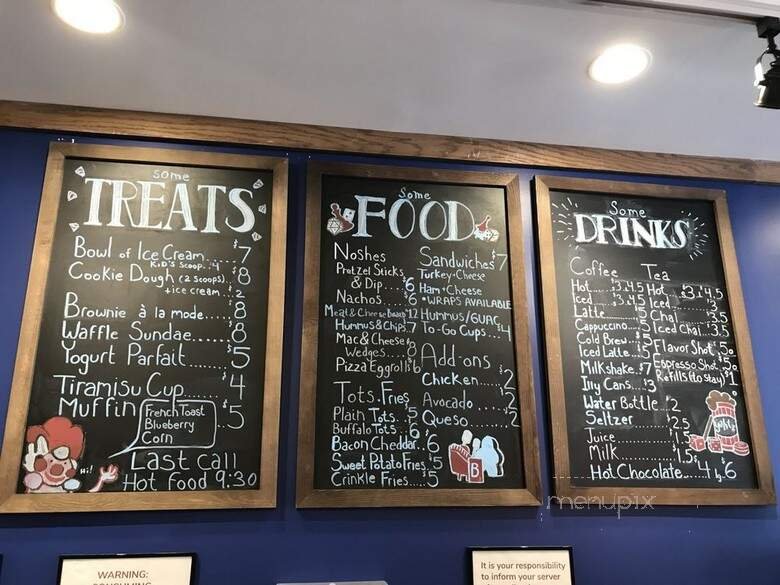 some
TREATS
Bowl of Ice Cream.... $7
KiD'S Scoop..4
Cookie Dough (2 scoops) $8
+ice cream..2
Brownie à la mode.... 8
Waffle Sundae..... 8
Yogurt Parfait..... 5
Tiramisu Cup..... 4
Muffin $5
French Toast
Blueberry
Corn
Hi!
Last call
Hot food 9:30
Some
FOOD
Noshes
Pretzel Sticks
& Dip... $6
Nachos..... 6
Meat & Cheese Board 12
Hummus & Chips.7
Mac & Cheese
Wedges... 8
Pizza Eggroll $6
Tots. Fries
Plain Tots.. 5
Buffalo Tots.. 6
Bacon Cheddar.. 6
Sweet Potato Fries.5
Crinkle Fries.....5
Sandwiches $7
Turkey+Cheese
Ham+Cheese
*WRAPS AVAILABLE
HUMMUS/GUAC $
To-Go Cups...4
Add-ons
Chicken..... $2
Avocado..... 2
Queso..... 2
B
Some
DRINKS
Coffee
Hot.... $3.4.5
Iced... $3.4.5
Latte.......5
Cappuccino..5
Cold Brew..5
Iced Latte..5
Milkshake.. $7
Illy Cans.. $3
Water Bottle.. $2
Seltzer......2.5
Juice.......1.5
Milk.......1.5
Hot Chocolate..$4 lg. $6
Tea
Hot.. $3.4.5
Iced
Chai
Iced Chai..3.5
Flavor Shot.50
Espresso Shot.50
Refills (to stay) $1
menupix
WARNING:
CONSUMING
It is your responsibility
to inform your server